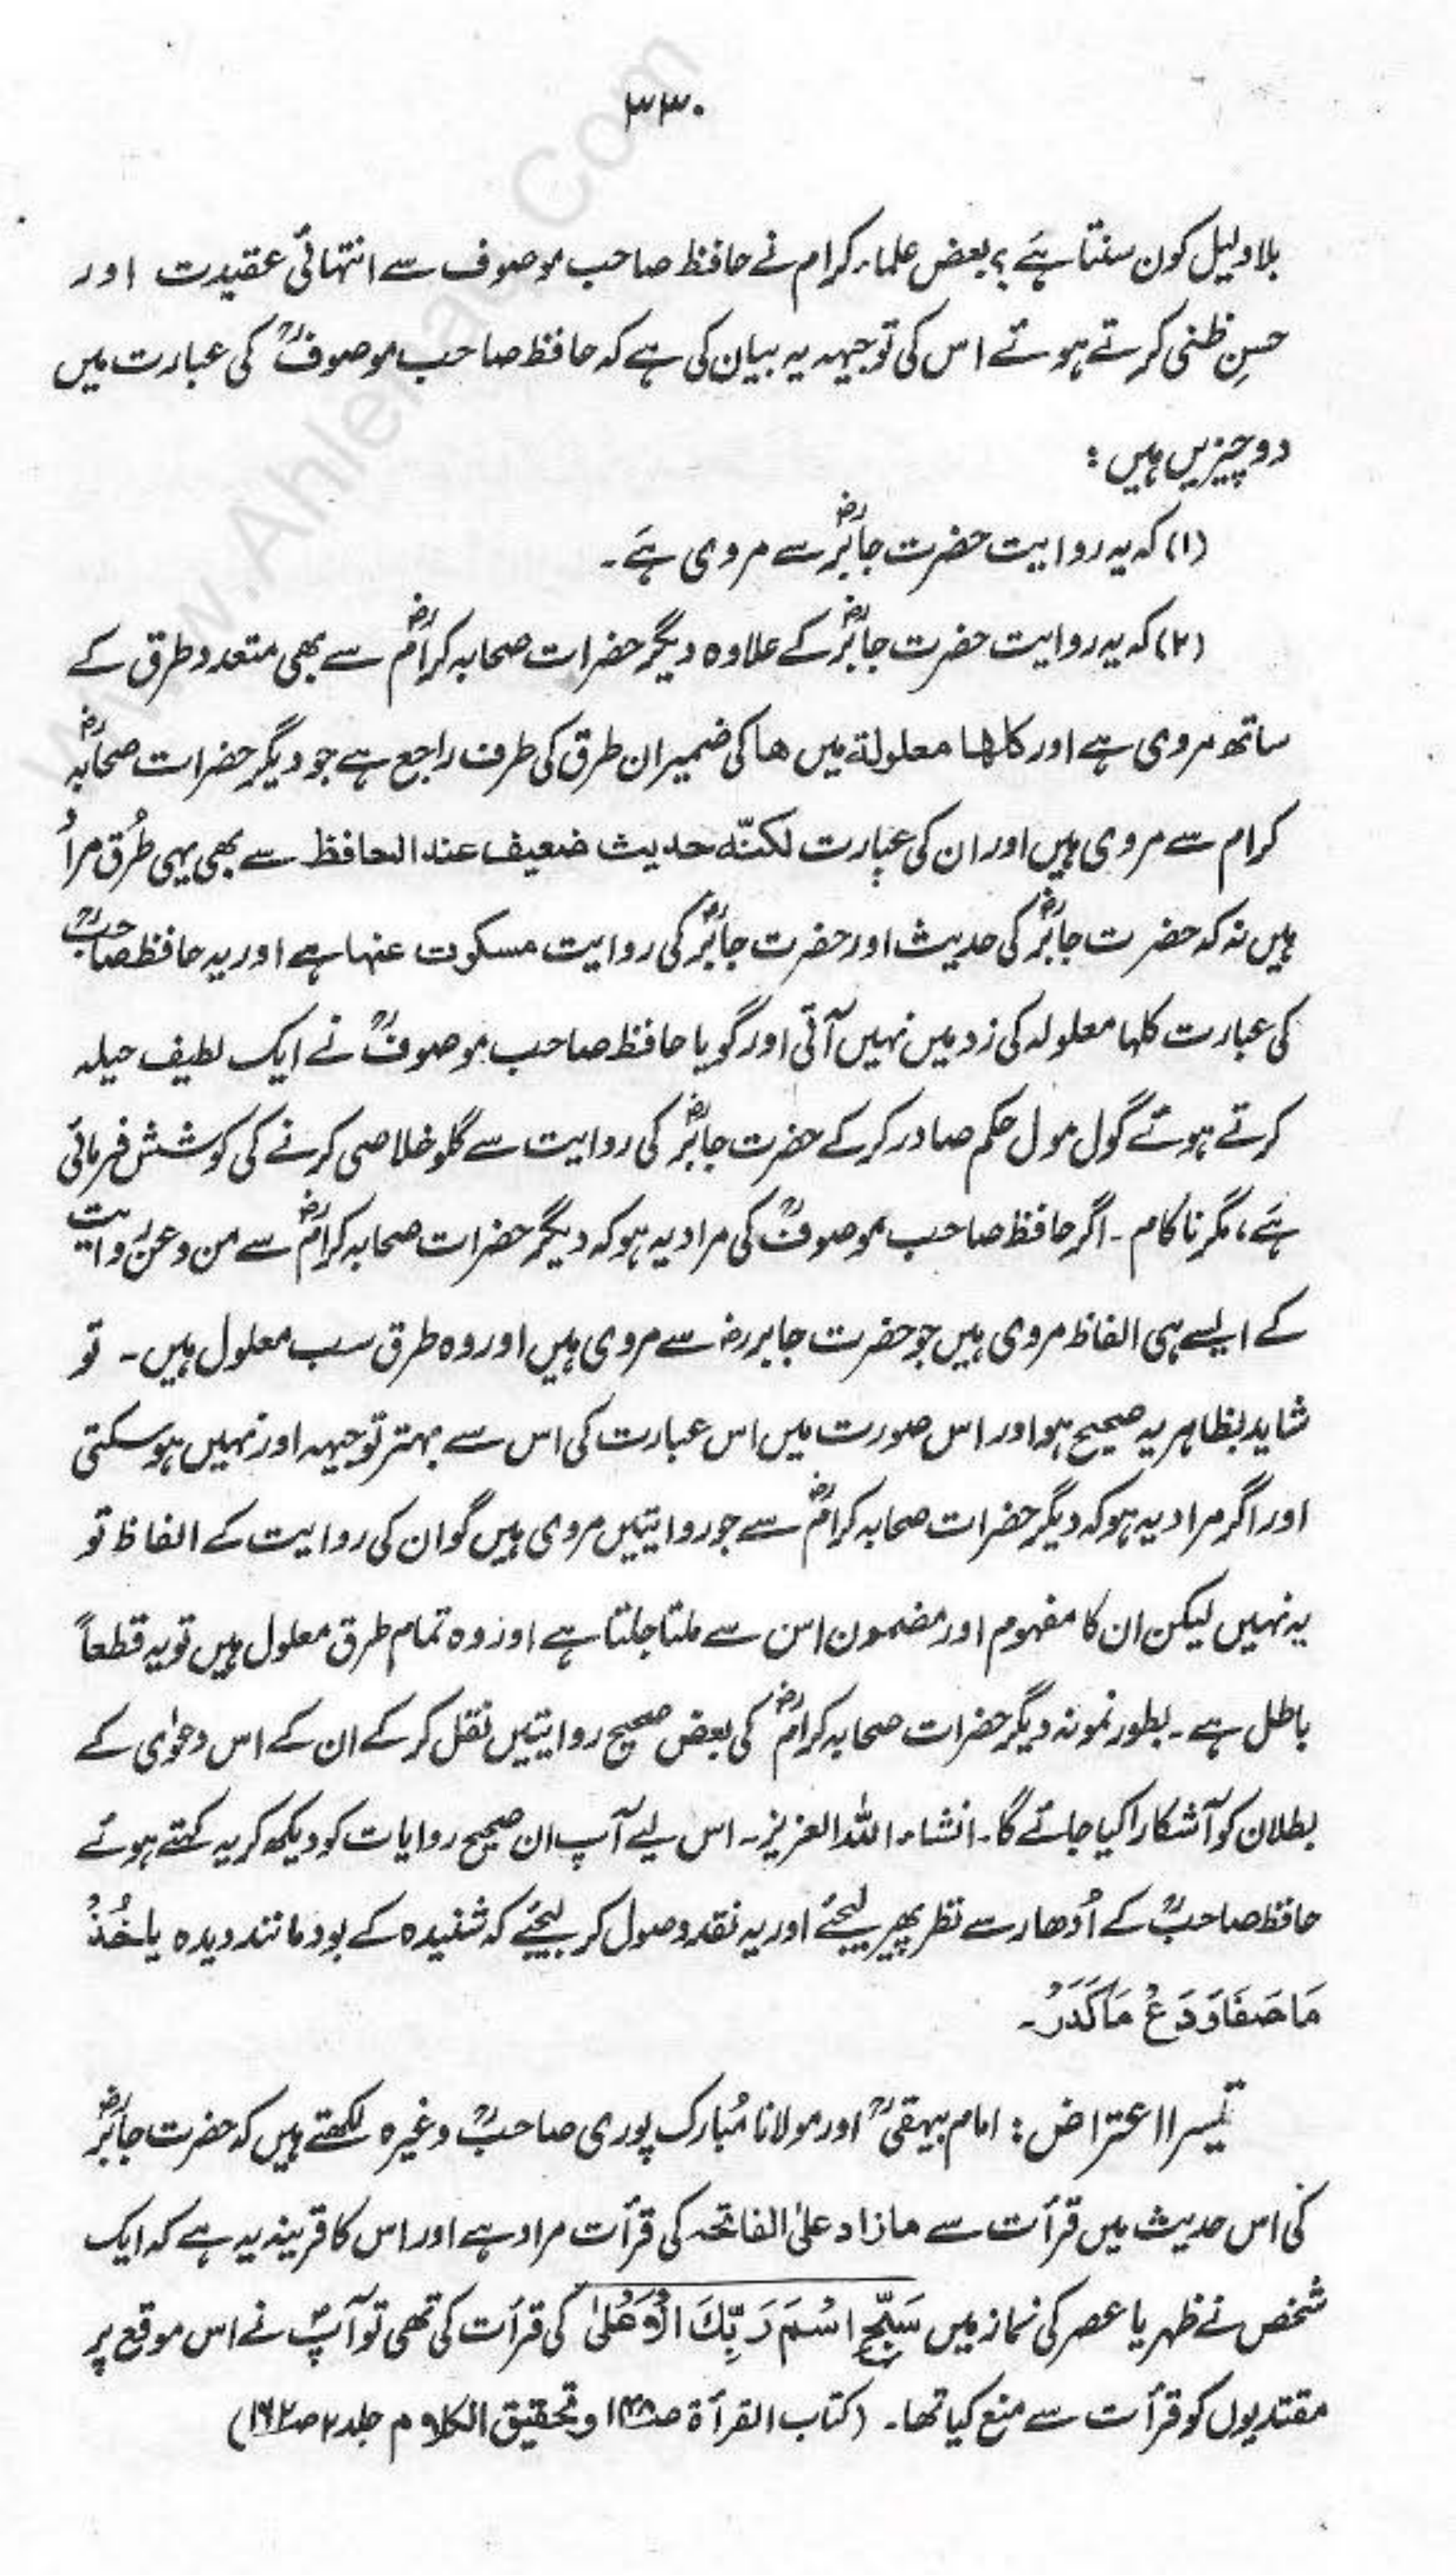 ۳۳۰
بلا دلیل کون سنتا ہے؟ بعض علماء کرام نے حافظ صاحب موصوف سے انتہائی عقیدت اور
حسنِ ظنی کرتے ہوئے اس کی توجیہہ یہ بیان کی ہے کہ حافظ صاحب موصوفؒ کی عبارت میں
دو چیزیں ہیں:
(۱) کہ یہ روایت حضرت جابرؓ سے مروی ہے۔
(۲) کہ یہ روایت حضرت جابرؓ کے علاوہ دیگر حضرات صحابہ کرامؓ سے بھی متعدد طرق کے
ساتھ مروی ہے اور کلہا معلولة میں ھا کی ضمیر ان طرق کی طرف راجع ہے جو دیگر حضرات صحابہؓ
کرام سے مروی ہیں اور ان کی عبارت لکنّه حدیث ضعیف عند الحافظ سے بھی یہی طُرق مراُ
ہیں نہ کہ حضرت جابرؓ کی حدیث اور حضرت جابرؓ کی روایت مسکوت عنہا ہے اور یہ حافظ صاحبؒ
کی عبارت کلہا معلولہ کی زد میں نہیں آتی اور گویا حافظ صاحب موصوفؒ نے ایک لطیف حیلہ
کرتے ہوئے گول مول حکم صادر کر کے حضرت جابرؓ کی روایت سے گلو خلاصی کرنے کی کوشش فرمائی
ہے، مگر ناکام۔ اگر حافظ صاحب موصوفؒ کی مراد یہ ہو کہ دیگر حضرات صحابہ کرامؓ سے من و عن روایت
کے ایسے ہی الفاظ مروی ہیں جو حضرت جابر رضہ سے مروی ہیں اور وہ طرق سب معلول ہیں۔ تو
شاید بظاہر یہ صحیح ہو اور اس صورت میں اس عبارت کی اس سے بہتر توجیہہ اور نہیں ہو سکتی
اور اگر مراد یہ ہو کہ دیگر حضرات صحابہ کرامؓ سے جو روایتیں مروی ہیں گو ان کی روایت کے الفاظ تو
یہ نہیں لیکن ان کا مفہوم اور مضمون اس سے ملتا جلتا ہے اور وہ تمام طرق معلول ہیں تو یہ قطعاً
باطل ہے۔ بطور نمونہ دیگر حضرات صحابہ کرامؓ کی بعض صحیح روایتیں نقل کر کے ان کے اس دعوٰی کے
بطلان کو آشکارا کیا جائے گا۔ انشاء اللہ العزیز۔ اس لیے آپ ان صحیح روایات کو دیکھ کر یہ کہتے ہوئے
حافظ صاحبؒ کے اُدھار سے نظر پھیر لیجئے اور یہ نقد وصول کر لیجئے کہ شنیدہ کے بود مانند دیدہ یا خُذْ
مَا صَفَا وَدَعْ مَا كَدَرَ۔
تیسرا اعتراض: امام بیہقیؒ اور مولانا مُبارک پوری صاحبؒ وغیرہ لکھتے ہیں کہ حضرت جابرؓ
کی اس حدیث میں قرأت سے مازاد علیٰ الفاتحہ کی قرأت مراد ہے اور اس کا قرینہ یہ ہے کہ ایک
شخص نے ظہر یا عصر کی نماز میں سَبِّحِ اسْمَ رَبِّكَ الْاَعْلٰى کی قرأت کی تھی تو آپؐ نے اس موقع پر
مقتدیوں کو قرأت سے منع کیا تھا۔ (کتاب القرأة ص۱۴۸ و تحقیق الکلام جلد ۲ ص۱۶۲)